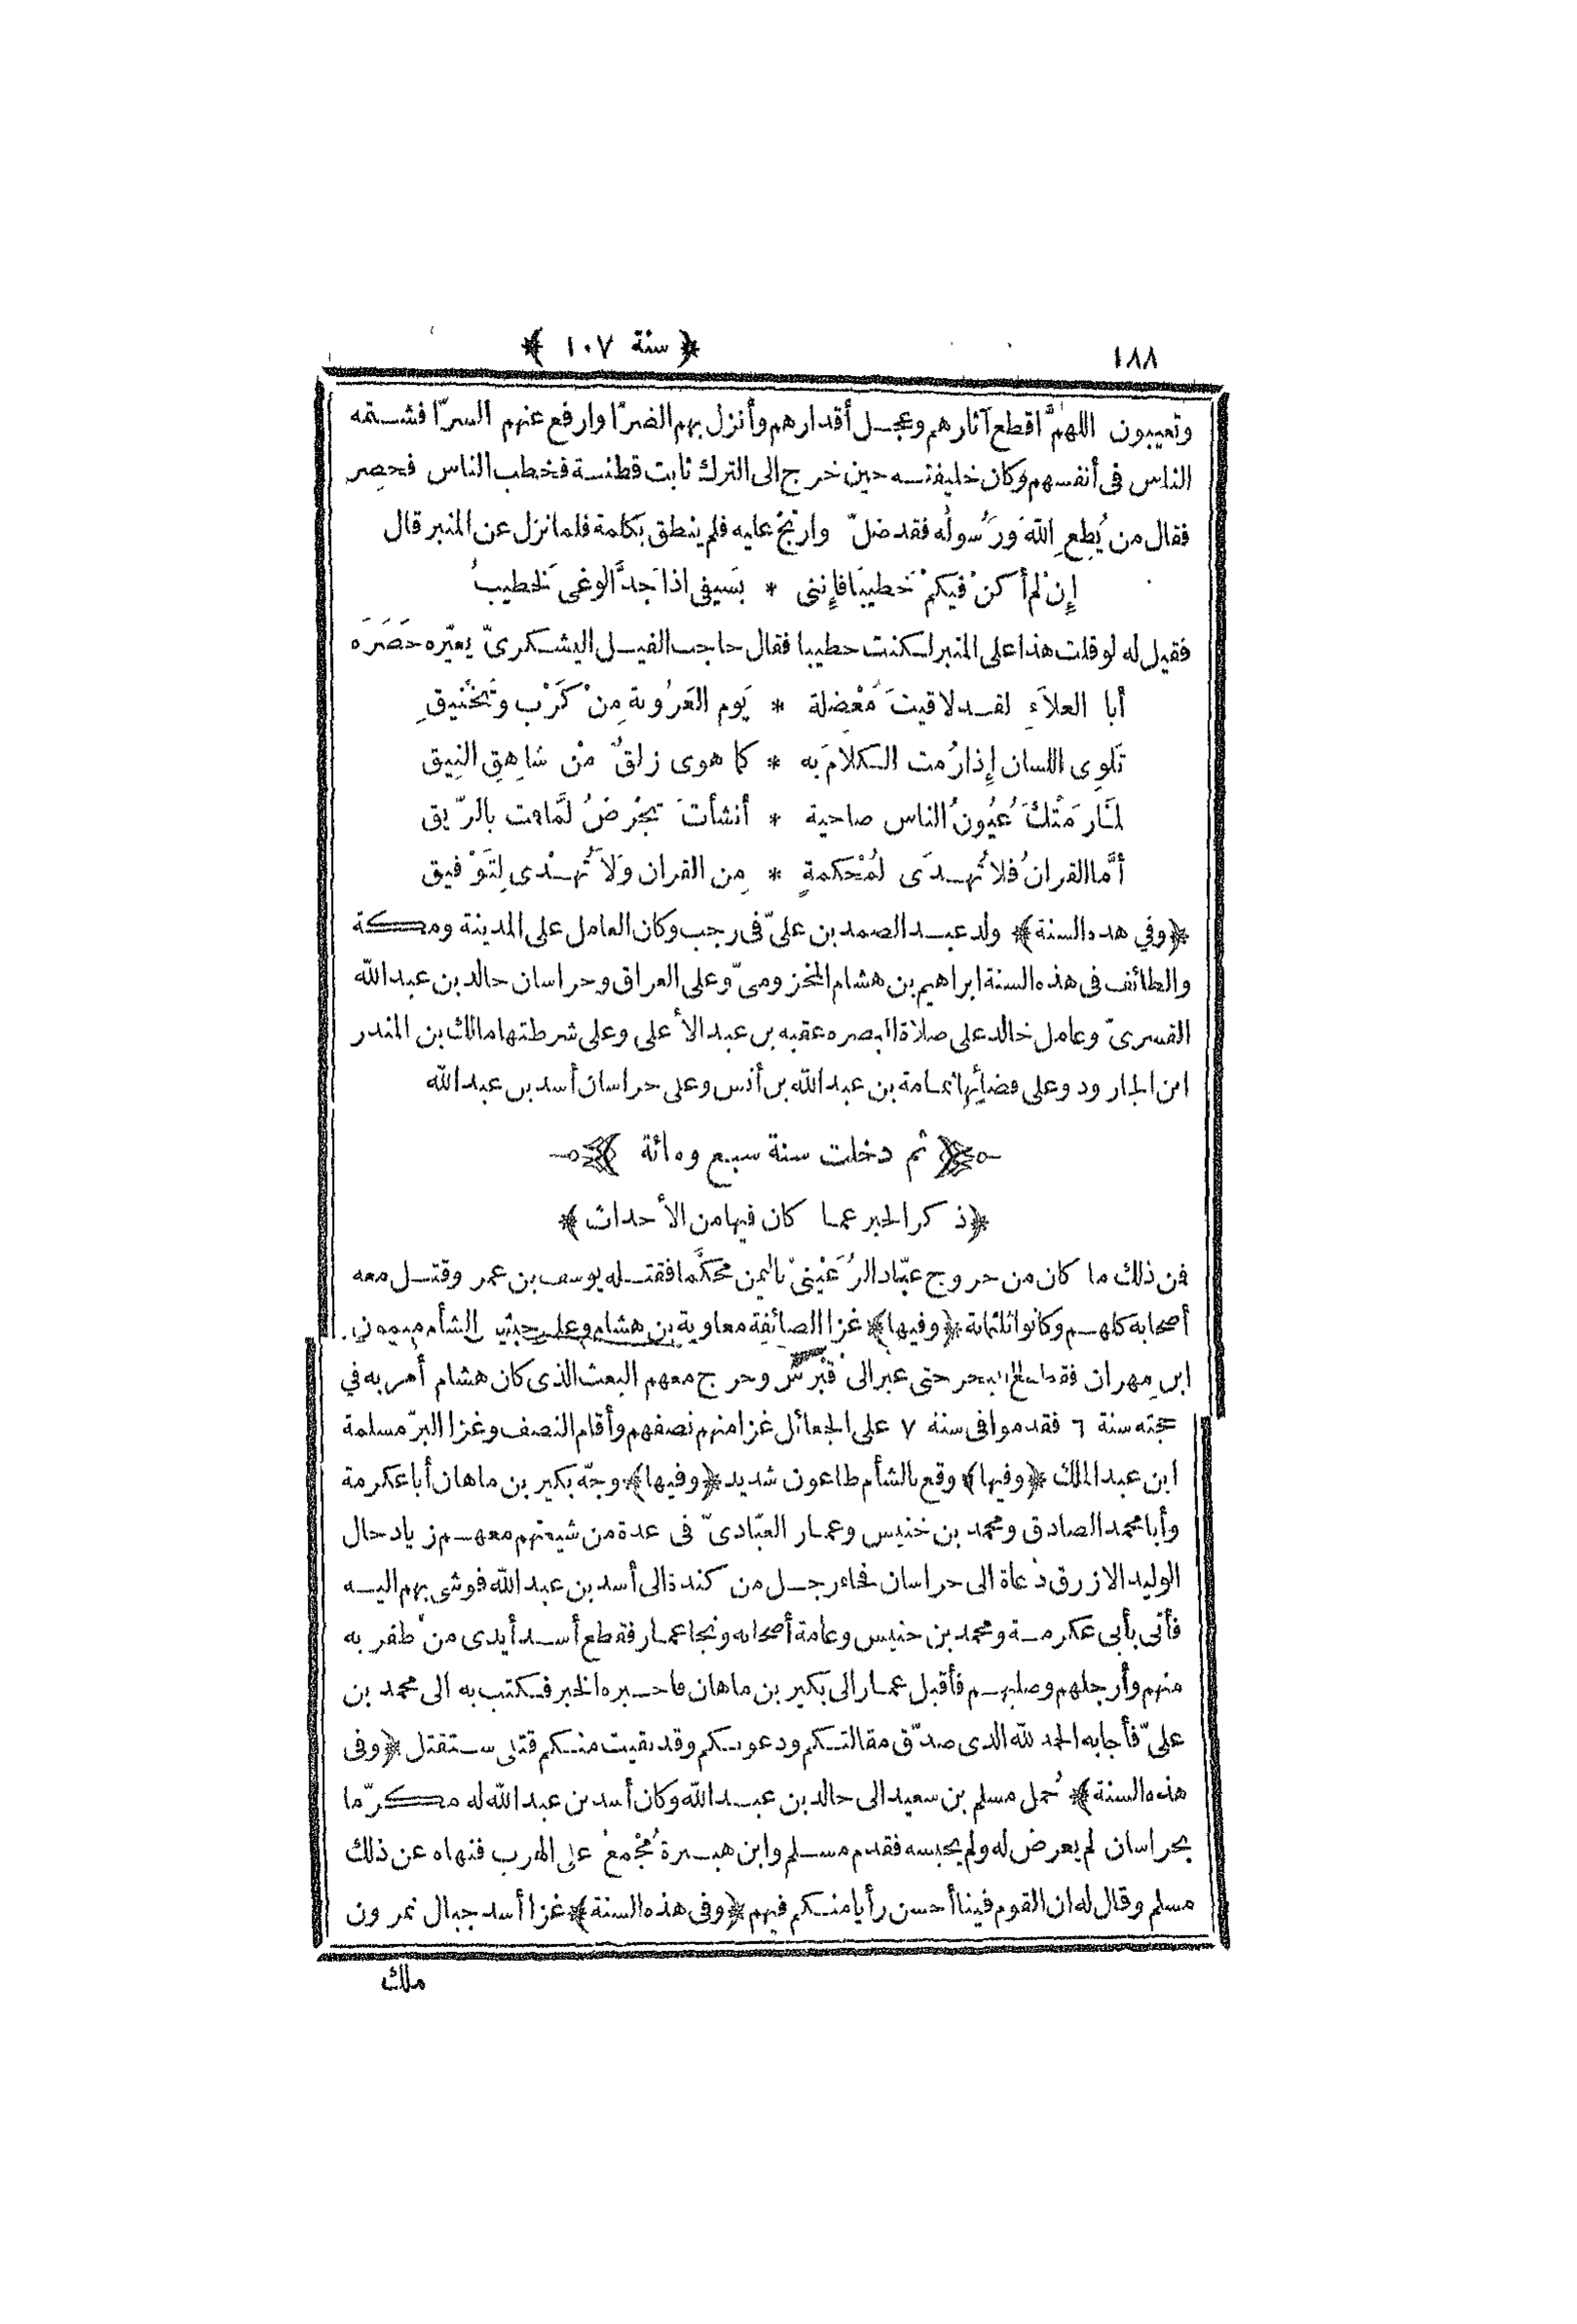 ١٨٨ ﴿ سنة ١٠٧ ﴾
وتعيبون اللهمَّ اقطع آثارهم وعجل أقدارهم وأنزل بهم الضرّا وارفع عنهم السرّا فشتمه
الناس فى أنفسهم وكان خليفته حين خرج الى الترك ثابت قطنة فخطب الناس فحصِر
فقال من يُطِعِ اللهَ وَرَسُولَه فقد ضلّ وارتج عليه فلم ينطق بكلمة فلما نزل عن المنبر قال
إِنْ لم أكنْ فيكمْ خَطيبَا فإِننى * بسَيفى اذا جَدَّ الوغى لَخطيبُ
فقيل له لو قلت هذا على المنبر لكنت خطيبا فقال حاجب الفيل اليشكرىّ يعيّره حَصَرَه
أبا العلاَءِ لقد لاقيتَ مُعْضِلة * يَوم العَرُوبة مِنْ كَرْب وتَخْنيقِ
تَلوِى اللسان إِذا رُمت الكلامَ به * كما هوى زلقٌ مْن شاهِقِ النِيق
لمَّا رَمَتْكَ عُيُونُ الناس صاحية * أنشأتَ تَجْرضُ لمَّا قمت بالرّيق
أمَّا القرانُ فلا تُهدَى لمُحْكمةٍ * مِن القران وَلاَ تُهدى لِتَوْفيق
﴿وفي هذه السنة﴾ ولد عبد الصمد بن علىّ فى رجب وكان العامل على المدينة ومكة
والطائف فى هذه السنة ابراهيم بن هشام المخزومىّ وعلى العراق وخراسان خالد بن عبد الله
القسرىّ وعامل خالد على صلاة البصره عقبه بن عبد الأعلى وعلى شرطتها مالك بن المنذر
ابن الجارود وعلى قضائها ثمامة بن عبد الله بن أنس وعلى خراسان أسد بن عبد الله
﴿ ثم دخلت سنة سبع ومائة ﴾
﴿ذكر الخبر عما كان فيها من الأحداث﴾
فمن ذلك ما كان من خروج عبّاد الرُعَيْنىّ باليمن محكّما فقتله يوسف بن عمر وقتل معه
أصحابه كلهم وكانوا ثلثمائة ﴿وفيها﴾ غزا الصائفة معاوية بن هشام وعلى جيش الشأم ميمون
ابن مِهران فقطع البحر حتى عبر الى قُبْرس وخرج معهم البعث الذى كان هشام أمر به في
حجته سنة ٦ فقدموا فى سنة ٧ على الجعائل غزا منهم نصفهم وأقام النصف وغزا البرّ مسلمة
ابن عبد الملك ﴿وفيها﴾ وقع بالشأم طاعون شديد ﴿وفيها﴾ وجّه بكير بن ماهان أبا عكرمة
وأبا محمد الصادق ومحمد بن خنيس وعمار العبّادىّ فى عدة من شيعتهم معهم زياد خال
الوليد الازرق دُعاة الى خراسان فجاء رجل من كندة الى أسد بن عبد الله فوشى بهم اليه
فأتى بأبى عكرمة ومحمد بن خنيس وعامة أصحابه ونجا عمار فقطع أسد أيدى من ظفر به
منهم وأرجلهم وصلبهم فأقبل عمار الى بكير بن ماهان فاخبره الخبر فكتب به الى محمد بن
علىّ فأجابه الحمد لله الذى صدّق مقالتكم ودعوتكم وقد بقيت منكم قتلى ستقتل ﴿وفى
هذه السنة﴾ حُمل مسلم بن سعيد الى خالد بن عبد الله وكان أسد بن عبد الله له مكرّما
بخراسان لم يعرض له ولم يحبسه فقدم مسلم وابن هبيرة مُجْمع على الهرب فنهاه عن ذلك
مسلم وقال له ان القوم فينا أحسن رأيا منكم فيهم ﴿وفى هذه السنة﴾ غزا أسد جبال نمرون
ملك